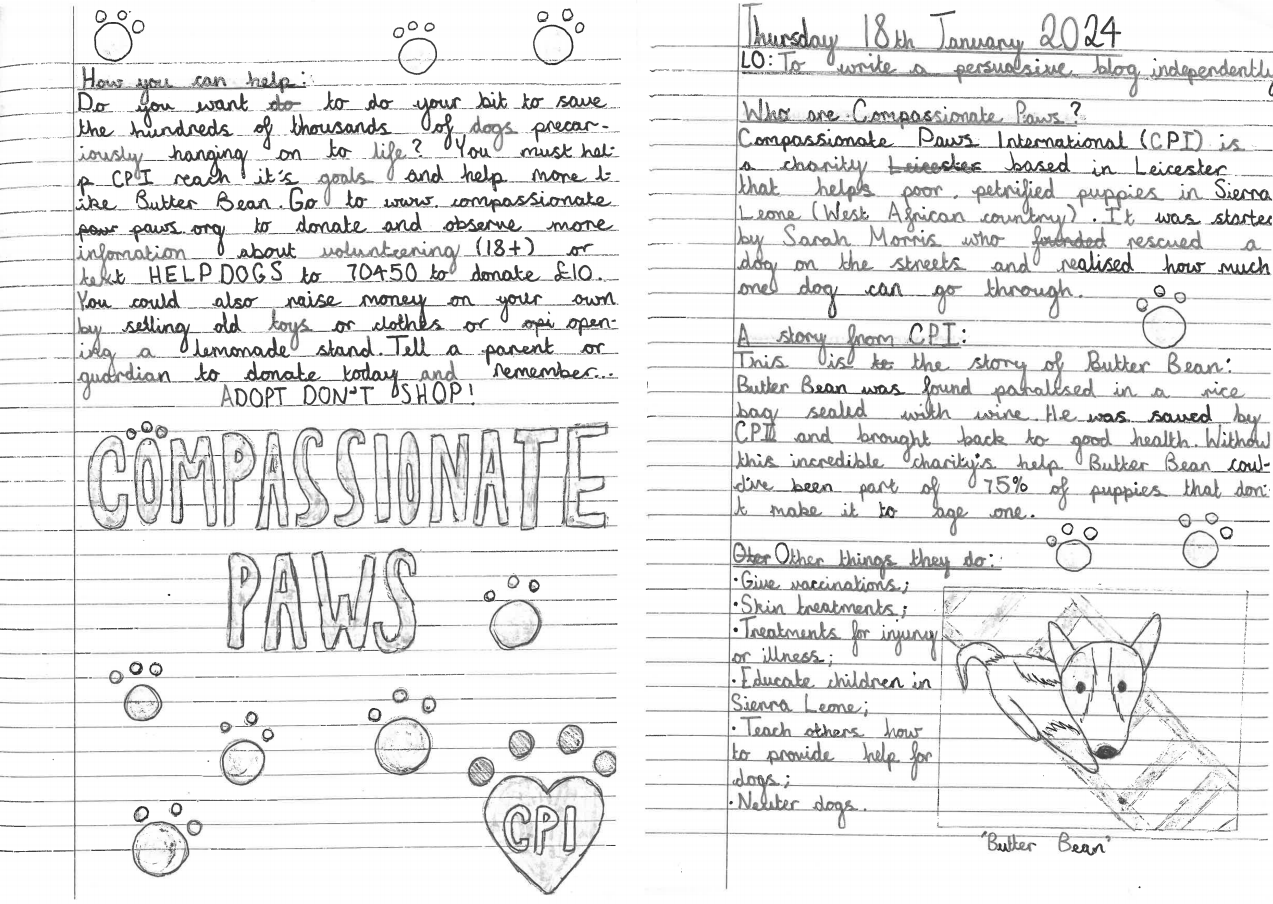 How you can help:
Do you want do to do your bit to save
the hundreds of thousands of dogs precar-
iously hanging on to life? You must hel-
p CPI reach it's goals and help more l-
ike Butter Bean. Go to www. compassionate
paw paws.org to donate and observe more
infomation about volunteering (18+) or
text HELPDOGS to 70450 to donate £10.
You could also raise money on your own
by selling old toys or clothes or opi open-
ing a lemonade stand. Tell a parent or
guardian to donate today and remember...
ADOPT DON'T SHOP!
COMPASSIONATE
PAWS
CPI
Thursday 18th January 2024
LO: To write a persuasive blog independently
Who are Compassionate Paws?
Compassionate Paws International (CPI) is
a charity Leicester based in Leicester
that helps poor, petrified puppies in Sierra
Leone (West African country). It was started
by Sarah Morris who founded rescued a
dog on the streets and realised how much
one dog can go through.
A story from CPI:
This is to the story of Butter Bean:
Butter Bean was found paralised in a rice
bag sealed with wire. He was saved by
CPI and brought back to good health. Withou
this incredible charity's help Butter Bean coul-
d've been part of 75% of puppies that don'
t make it to age one.
Oter Other things they do:
·Give vaccinations;
·Skin treatments;
·Treatments for injury
or illness;
·Educate children in
Sierra Leone;
·Teach others how
to provide help for
dogs;
·Neuter dogs.
'Butter Bean'